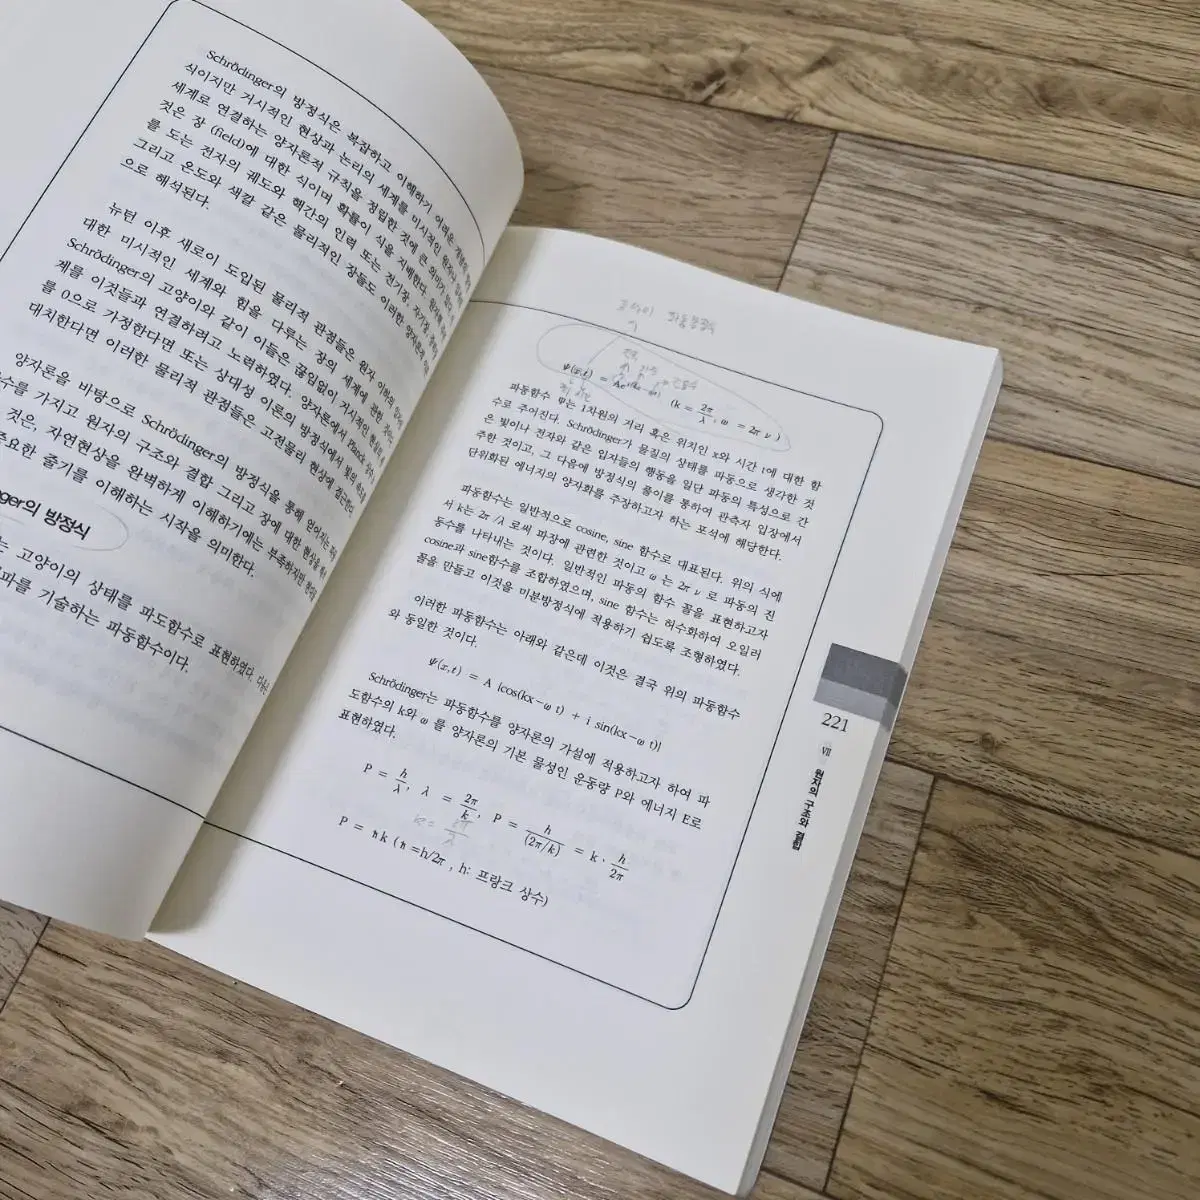 Schrödinger의 방정식은 복잡하고 이해하기 어려운
식이지만 거시적인 현상과 논리의 세계를 미시적인 원자
세계로 연결하는 양자론적 규칙을 정립한 것에 큰 의미가
것은 장 (field)에 대한 식이며 확률이 식을 지배한다.
를 도는 전자의 궤도와 핵간의 인력 또는 전기장, 자기장,
그리고 온도와 색깔 같은 물리적인 장들도 이러한
으로 해석된다.
뉴턴 이후 새로이 도입된 물리적 관점들은 원자 이하의
대한 미시적인 세계와 힘을 다루는 장의 세계에 관한 것
Schrödinger의 고양이와 같이 이들은 끊임없이 거시적인 현실의
계를 이것들과 연결하려고 노력하였다. 양자론에서 Planck 상수
를 0으로 가정한다면 또는 상대성 이론의 방정식에서 빛의
대치한다면 이러한 물리적 관점들은 고전물리 현상에 접근한다.
양자론을 바탕으로 Schrödinger의 방정식을 통해 얻어지는
함수를 가지고 원자의 구조와 결합 그리고 장에 대한 현상을
것은, 자연현상을 완벽하게 이해하기에는 부족하지만
중요한 줄기를 이해하는 시작을 의미한다.
nger의 방정식
는 고양이의 상태를 파도함수로 표현하였다. 다음은
파를 기술하는 파동함수이다.
파동방정식
ψ(x,t) = Ae^i(kx-ωt) (k = 2π/λ, ω = 2πν)
파동함수 ψ는 1차원의 거리 혹은 위치인 x와 시간 t에 대한 함
수로 주어진다. Schrödinger가 물질의 상태를 파동으로 생각한 것
은 빛이나 전자와 같은 입자들의 행동을 일단 파동의 특성으로 간
주한 것이고, 그 다음에 방정식의 풀이를 통하여 관측자 입장에서
단위화된 에너지의 양자화를 주장하고자 하는 포석에 해당한다.
파동함수는 일반적으로 cosine, sine 함수로 대표된다. 위의 식에
서 k는 2π/λ 로써 파장에 관련한 것이고 ω는 2πν 로 파동의 진
동수를 나타내는 것이다. 일반적인 파동의 함수 꼴을 표현하고자
cosine과 sine함수를 조합하였으며, sine 함수는 허수화하여 오일러
꼴을 만들고 이것을 미분방정식에 적용하기 쉽도록 조형하였다.
이러한 파동함수는 아래와 같은데 이것은 결국 위의 파동함수
와 동일한 것이다.
ψ(x,t) = A [cos(kx-ωt) + i sin(kx-ωt)]
Schrödinger는 파동함수를 양자론의 가설에 적용하고자 하여 파
도함수의 k와 ω를 양자론의 기본 물성인 운동량 P와 에너지 E로
표현하였다.
P = h/λ, λ = 2π/k, P = h/(2π/k) = k · h/2π
k = 2π/λ
P = ħk (ħ=h/2π, h: 프랑크 상수)
221
Ⅶ
원자의 구조와 결합